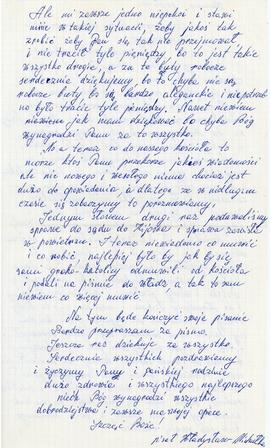 Ale mi zawsze jedno niepokoi i stawi
mnie w takiej sytuacji, żeby jakoś tak
zrobić żeby Pan się tak nie przejmował
i nie tracił tyle pieniędzy, bo to jest takie
wszystko drogie, a za te buty robocze
serdecznie dziękujemy, bo to chyba nie są
robocze buty bo są bardzo eleganckie i niepotrzeb
no było tracić tyle pieniędzy. Nawet niewiem
niewiem jak mam dziękować bo chyba Bóg
wynagrodzi Panu za to wszystko.
A o teraz co do naszego kościoła to
morze ktoś Panu przekarze jakieś wiadomości
ale nic nowego i wesołego niema chociaż jest
dużo do powiedzenia, a dlatego że w niedługim
czasie się zobaczymy to porozmawiamy.
Jednym słowem drugi raz podawaliśmy
sprawę do sądu do Kijowa i sprawa zawisła
w powietrzu. I teraz niewiadomo co mówić
i co robić, najlepiej było by jak by się
sami greko-katolicy odmówili od kościoła
i podali na piśmie do władz, a tak to sam
niewiem co więcej mówić
Na tym będę kończyć swoje pisanie
Bardzo przepraszam za pismo.
Jeszcze raz dziękuje za wszystko.
Serdecznie wszystkich pozdrawiamy
i życzymy Panu i pańskiej rodzinie
dużo zdrowia i wszystkiego najlepszego
niech Bóg wynagrodzi wszystkie
dobrodziejstwa i zawsze ma swojej opiece.
Szczęść Boże!
pisał Władysław